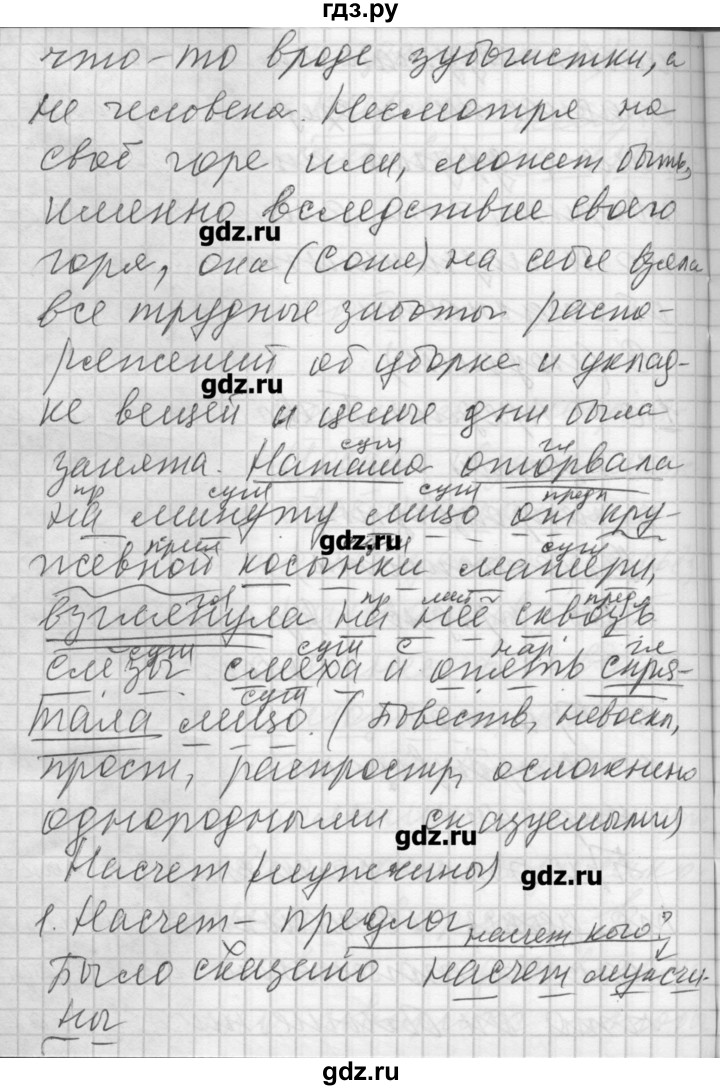 гдз.ру
что-то вроде зубочистки, а
не человека. Несмотря на
своё горе или, может быть,
именно вследствие своего
gdz.ru
горя, она (Соня) на себя взяла
все трудные заботы распо-
ряжений об уборке и уклад-
gdz.ru
ке вещей и целые дни была
сущ гл
занята. Наташа оторвала
пр сущ сущ предл
на минуту лицо от кру-
gdz.ru
прил сущ сущ
жевной косынки матери,
гл пр мест предл
взглянула на неё сквозь
сущ сущ с нар гл
слёзы смеха и опять спря-
сущ
тала лицо. (Повеств, невоскл,
прост, распростр, осложнено
однородными сказуемыми)
gdz.ru
Насчет (мужчины)
gdz.ru
1. Насчет – предлог
насчет кого?
Было сказано насчет мужчи-
ны
gdz.ru